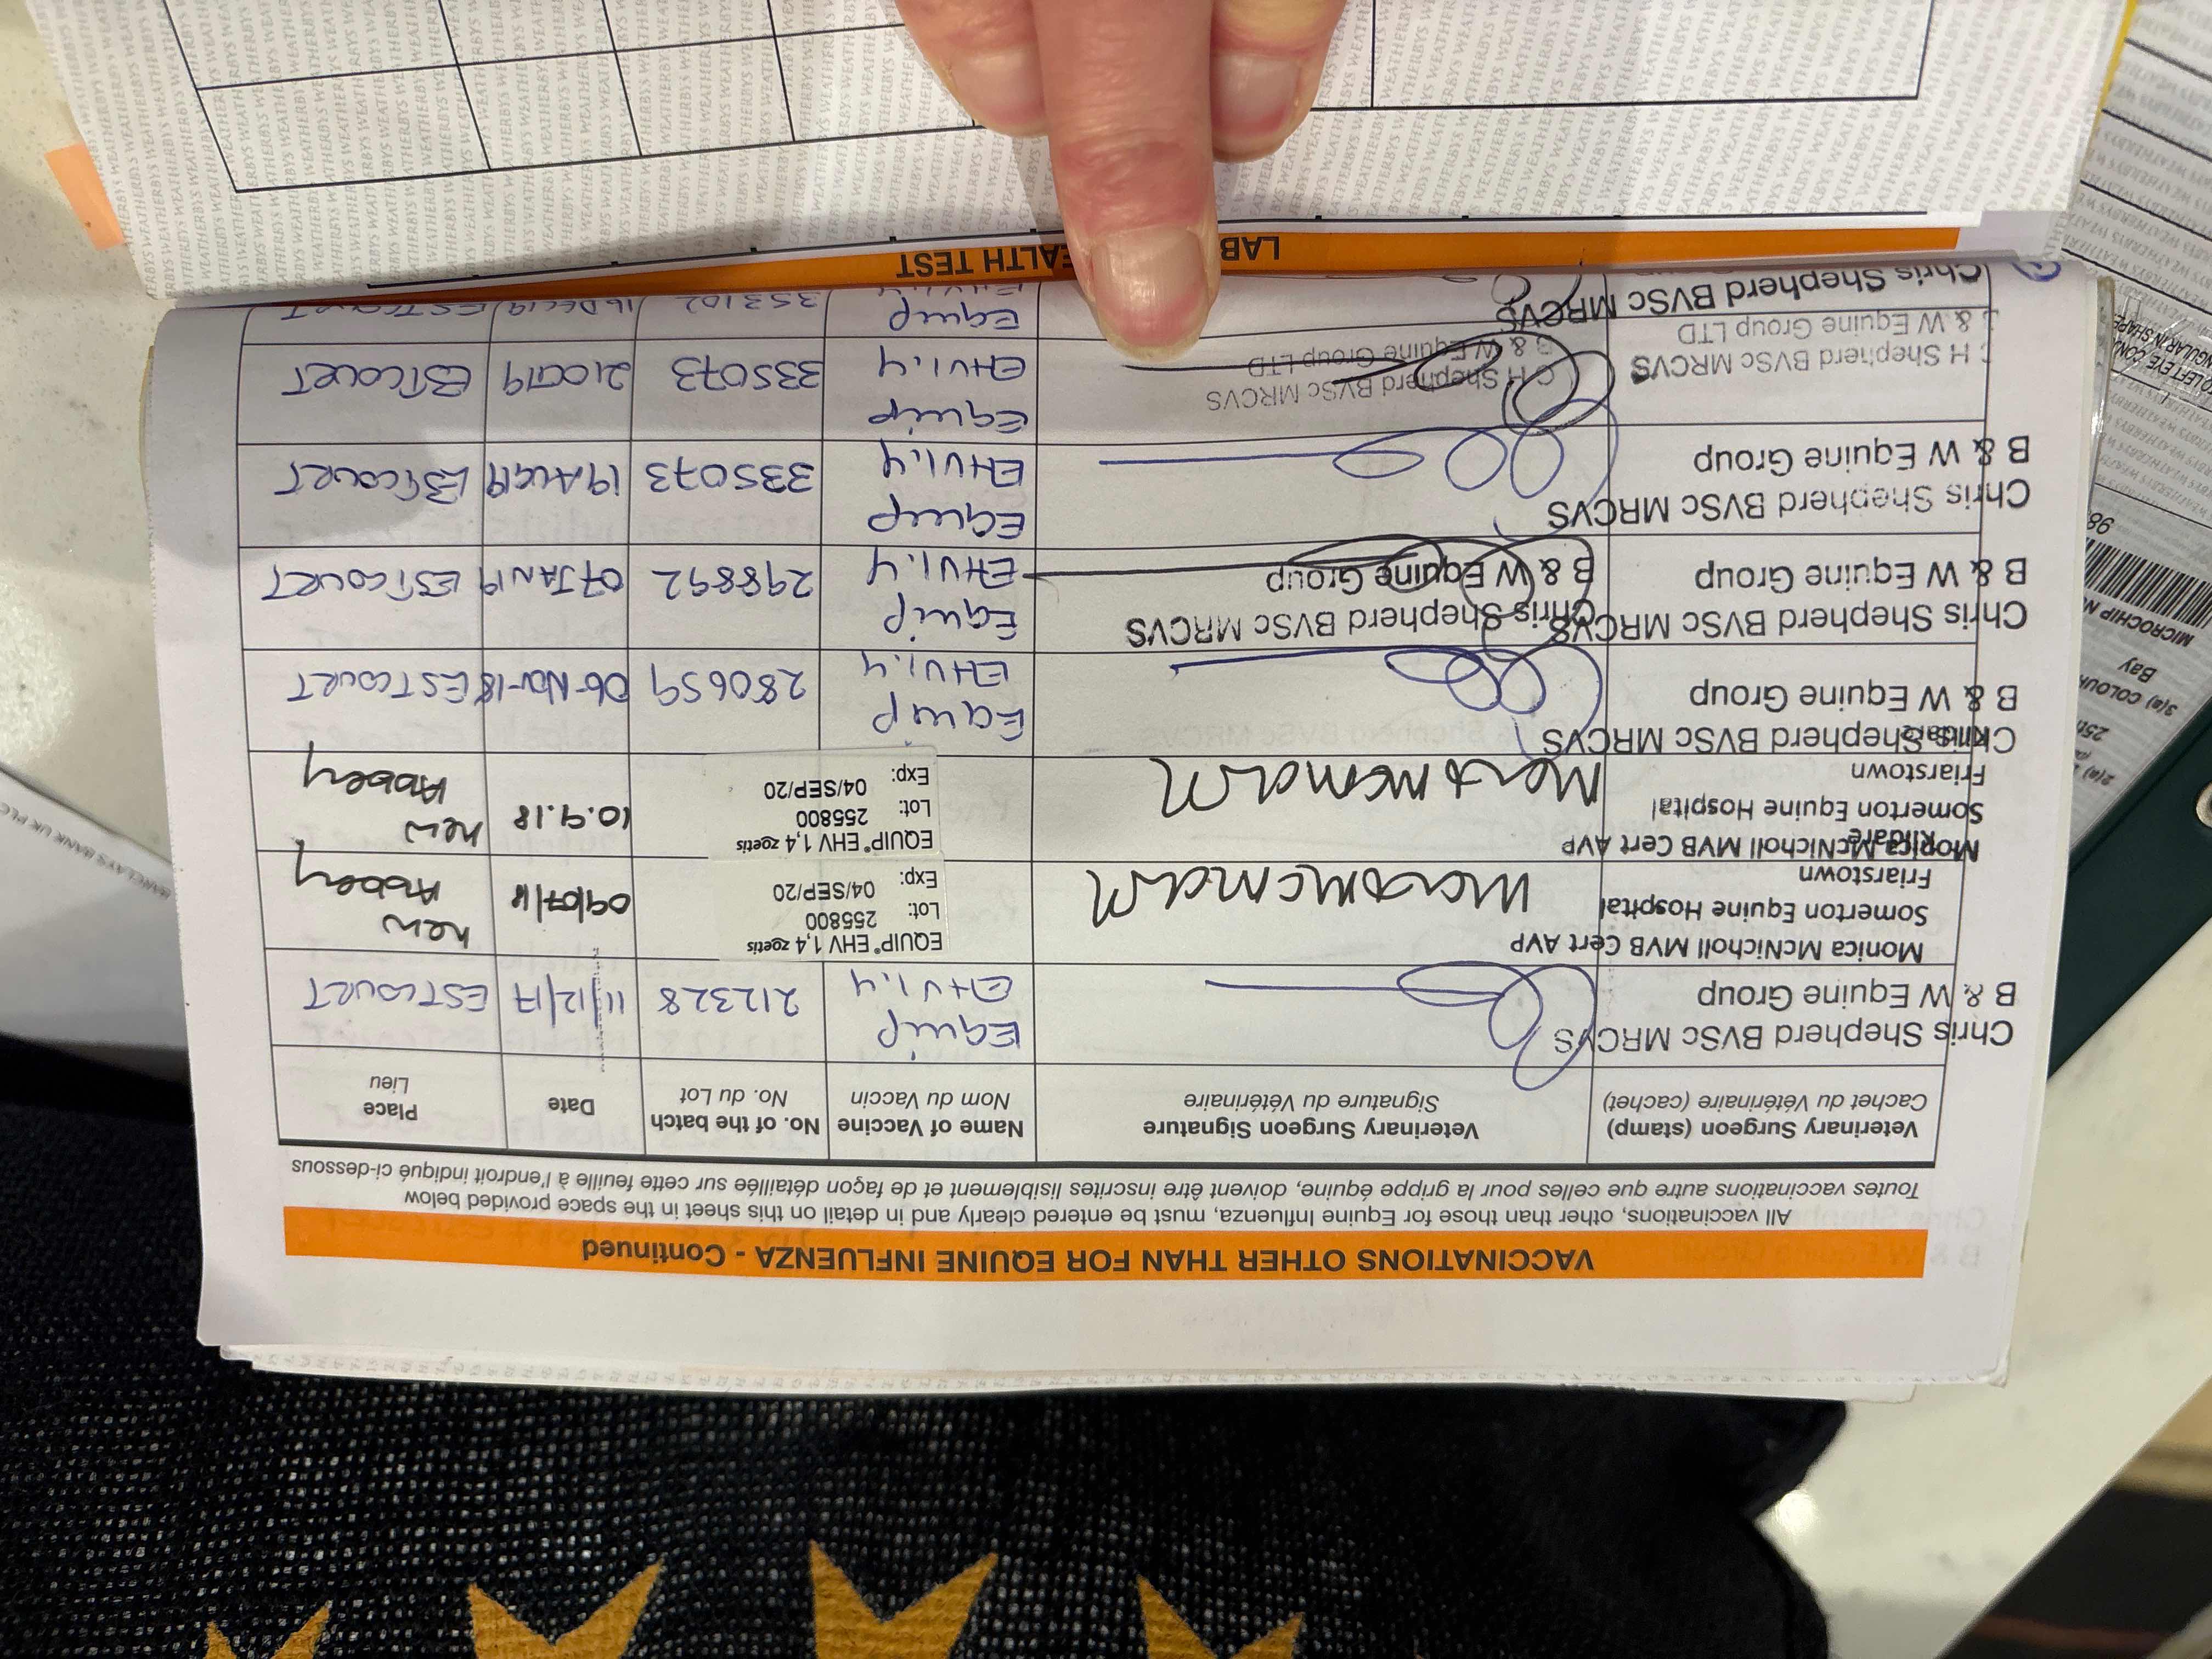 VACCINATIONS OTHER THAN FOR EQUINE INFLUENZA - Continued
All vaccinations, other than those for Equine Influenza, must be entered clearly and in detail on this sheet in the space provided below
Toutes vaccinations autre que celles pour la grippe équine, doivent être inscrites lisiblement et de façon détaillée sur cette feuille à l'endroit indiqué ci-dessous
Place
Lieu
Date
No. of the batch
No. du Lot
Name of Vaccine
Nom du Vaccin
Veterinary Surgeon Signature
Signature du Vétérinaire
Veterinary Surgeon (stamp)
Cachet du Vétérinaire (cachet)
ESTCOURT
11/12/17
212328
Equip
EHV1.4
Chris Shepherd BVSc MRCVS
B & W Equine Group
New
Abbey
EQUIP® EHV 1,4 zoetis
Lot: 255800
Exp: 04/SEP/20
Monica McNicholl MVB Cert AVP
Somerton Equine Hospital
Friarstown
Kildare
New
Abbey
10.9.18
EQUIP® EHV 1,4 zoetis
Lot: 255800
Exp: 04/SEP/20
Monica McNicholl MVB Cert AVP
Somerton Equine Hospital
Friarstown
Kildare
ESTCOURT
06-Nov-18
280659
Equip
EHV1.4
Chris Shepherd BVSc MRCVS
B & W Equine Group
ESTCOURT
07JAN19
298892
Equip
EHV1.4
Chris Shepherd BVSc MRCVS
B & W Equine Group
Chris Shepherd BVSc MRCVS
B & W Equine Group
ESTCOURT
19AUG19
335073
Equip
EHV1.4
Chris Shepherd BVSc MRCVS
B & W Equine Group
ESTCOURT
21OCT19
335073
Equip
EHV1.4
C H Shepherd BVSc MRCVS
B & W Equine Group LTD
C H Shepherd BVSc MRCVS
B & W Equine Group LTD
ESTCOURT
16DEC19
353102
Equip
EHV1.4
Chris Shepherd BVSc MRCVS
LAB
EALTH TEST
MICROCHIP N
98
Bay
3(a) COLOUR
25th
BARCLAYS BANK UK PLC